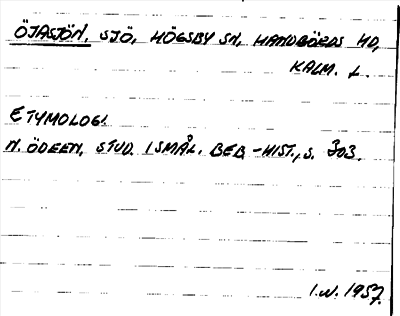 ÖJASJÖN, SJÖ, HÖGSBY SN, HANDBÖRDS HD,
KALM. L.
ETYMOLOGI.
N. ÖDEEN, STUD. I SMÅL. BEB.-HIST., S. 303.
I.W. 1957.